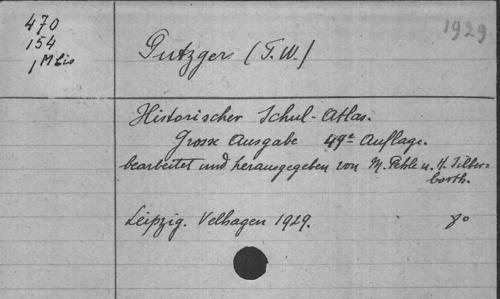 470
154
1 M bis
1929
Putzger (F. W.)
Historischer Schul-Atlas.
Grosse Ausgabe 49e Auflage.
bearbeitet und herausgegeben von M. Pehle u. H. Silber-
borth.
Leipzig. Velhagen 1929.
8o